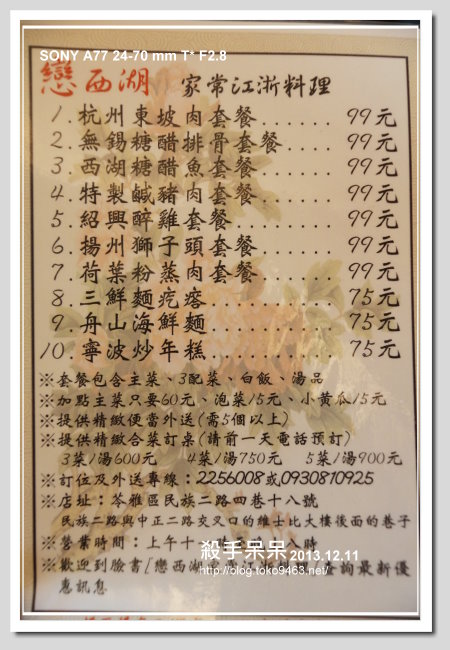 SONY A77 24-70 mm T* F2.8
戀西湖 家常江浙料理
1.杭州東坡肉套餐......99元
2.無錫糖醋排骨套餐....99元
3.西湖糖醋魚套餐......99元
4.特製鹹豬肉套餐......99元
5.紹興醉雞套餐........99元
6.揚州獅子頭套餐......99元
7.荷葉粉蒸肉套餐......99元
8.三鮮麵疙瘩..........75元
9.舟山海鮮麵..........75元
10.寧波炒年糕.........75元
※套餐包含主菜、3配菜、白飯、湯品
※加點主菜只要60元、泡菜15元、小黃瓜15元
※提供精緻便當外送(需5個以上)
※提供精緻合菜訂桌(請前一天電話預訂)
3菜1湯600元 4菜1湯750元 5菜1湯900元
※訂位及外送專線:2256008或0930810925
※店址:苓雅區民族二路四巷十八號
民族二路與中正二路交叉口的維士比大樓後面的巷子
※營業時間:上午十 八時
殺手呆呆 2013.12.11
http://blog.toko9463.net/
※歡迎到臉書[戀西湖 查詢最新優
惠訊息